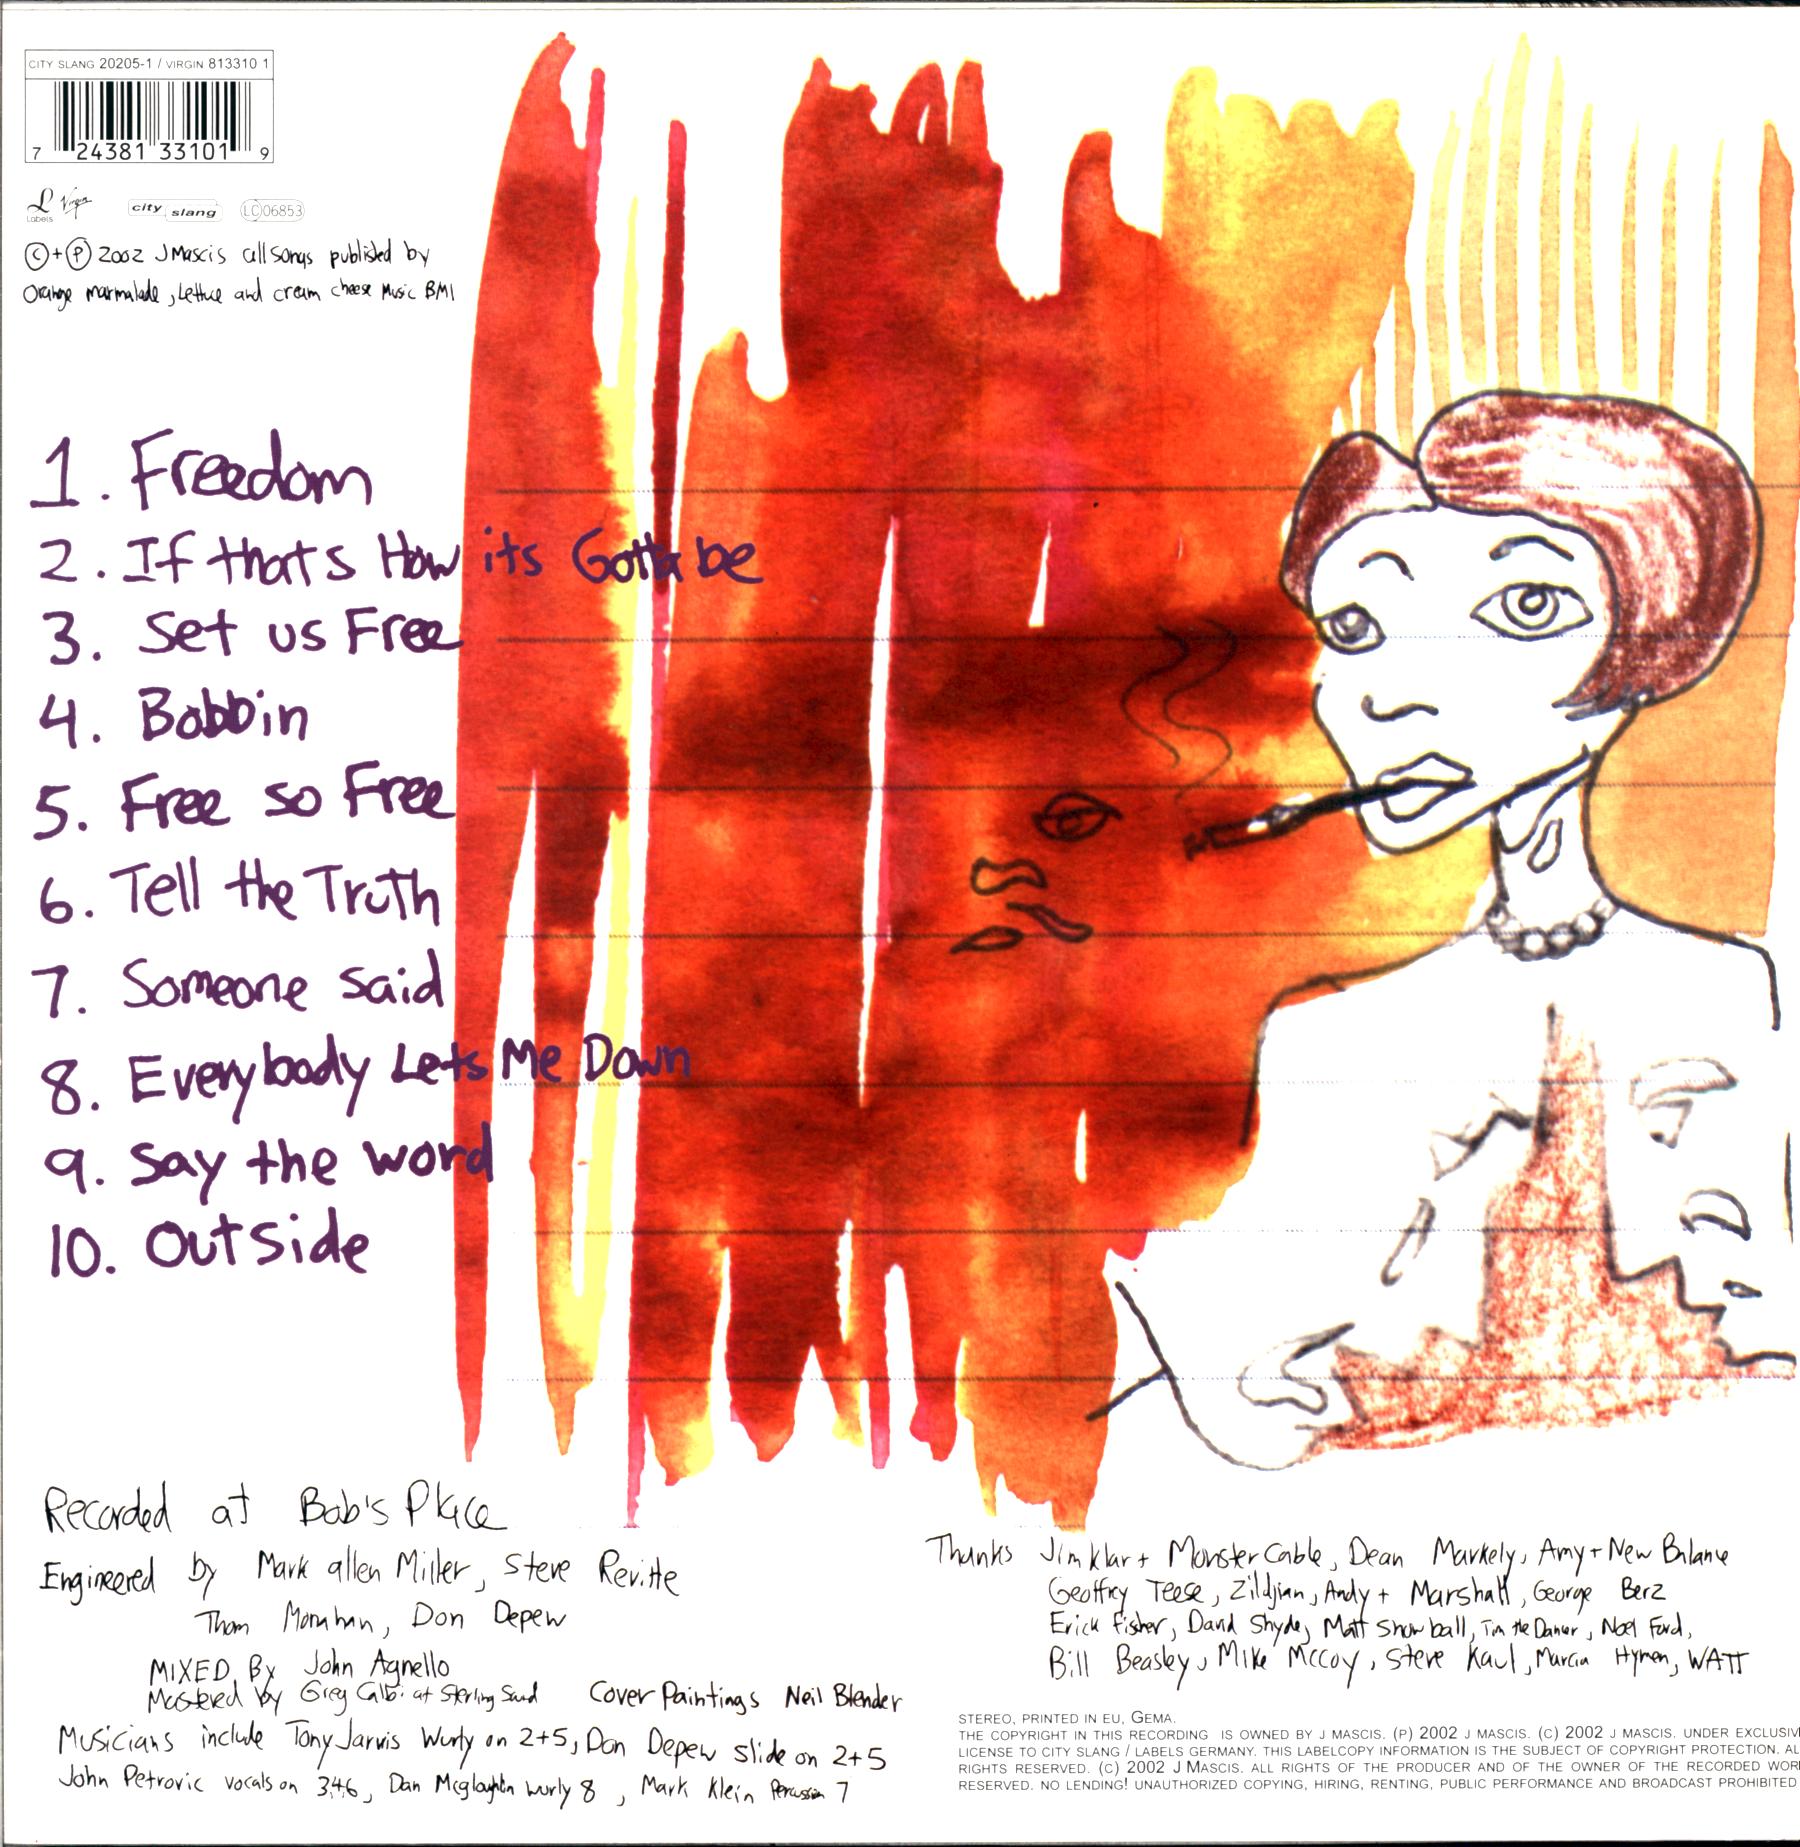 CITY SLANG 20205-1 / VIRGIN 813310 1
7 24381 33101 9
L Labels Virgin city slang LC 06853
© + ℗ 2002 J Mascis all songs published by
Orange marmalade, Lettuce and cream cheese Music BMI
1. Freedom
2. If that's How its Gotta be
3. Set us Free
4. Bobbin
5. Free so Free
6. Tell the Truth
7. Someone said
8. Everybody Lets Me Down
9. Say the word
10. Outside
Recorded at Bob's Place
Engineered by Mark allen Miller, Steve Revitte
Thom Monahan, Don Depew
MIXED By John Agnello
Mastered by Greg Calbi at Sterling Sound
Cover Paintings Neil Blender
Musicians include Tony Jarvis Wurly on 2+5, Don Depew slide on 2+5
John Petrovic vocals on 3,4,6, Dan Mcgloughlin wurly 8, Mark Klein Percussion 7
Thanks Jim Klar + Monster Cable, Dean Markely, Amy + New Balance
Geoffry Teese, Zildjian, Andy + Marshall, George Berz
Erick Fisher, David Shyde, Matt Snowball, Tim the Dancer, Noel Ford,
Bill Beasley, Mike McCoy, Steve Kaul, Marcia Hymen, WATT
STEREO, PRINTED IN EU, GEMA.
THE COPYRIGHT IN THIS RECORDING IS OWNED BY J MASCIS. (P) 2002 J MASCIS. (C) 2002 J MASCIS. UNDER EXCLUSIV
LICENSE TO CITY SLANG / LABELS GERMANY. THIS LABELCOPY INFORMATION IS THE SUBJECT OF COPYRIGHT PROTECTION. AL
RIGHTS RESERVED. (C) 2002 J MASCIS. ALL RIGHTS OF THE PRODUCER AND OF THE OWNER OF THE RECORDED WOR
RESERVED. NO LENDING! UNAUTHORIZED COPYING, HIRING, RENTING, PUBLIC PERFORMANCE AND BROADCAST PROHIBITED